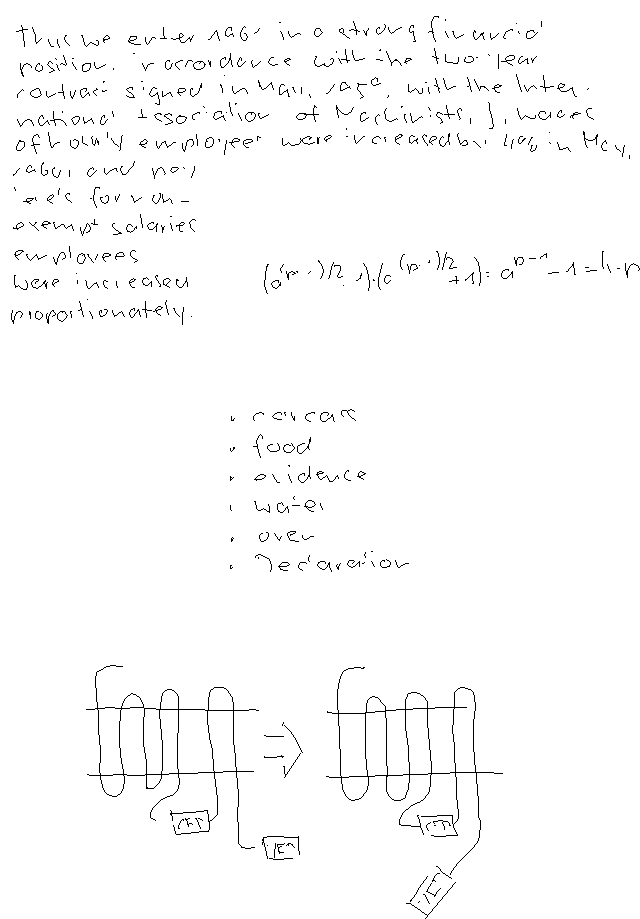 Thus we enter 1960 in a strong financial
position. In accordance with the two-year
contract signed in May, 1959, with the Inter-
national Association of Machinists, wages
of hourly employees were increased by 4% in May,
1960, and pay
levels for non-
exempt salaries
employees
were increased
proportionately.
(a^(p-1)/2 - 1)·(a^(p-1)/2 + 1) = a^p-1 - 1 = h·p
• carcass
• food
• evidence
• water
• over
• Declaration